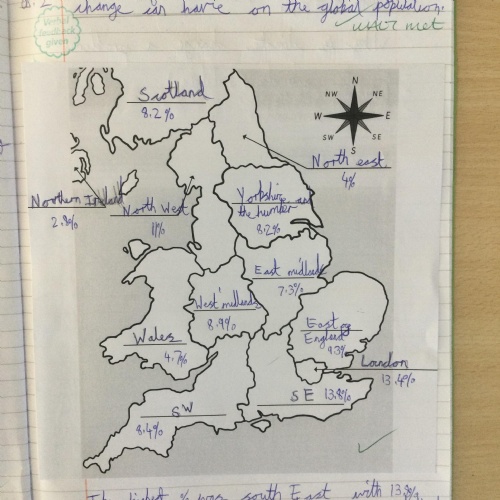 change can have on the global population.
WALT met
Verbal
feedback
given
Scotland
8.2%
N
NW
NE
W
E
SW
SE
S
North east
4%
Northern Ireland
2.8%
North West
11%
Yorkshire and
the humber
8.2%
East midlands
7.3%
West midlands
8.9%
East of
England
9.3%
Wales
4.7%
London
13.4%
SE 13.8%
SW
8.4%
highest % was south East with 13.8%